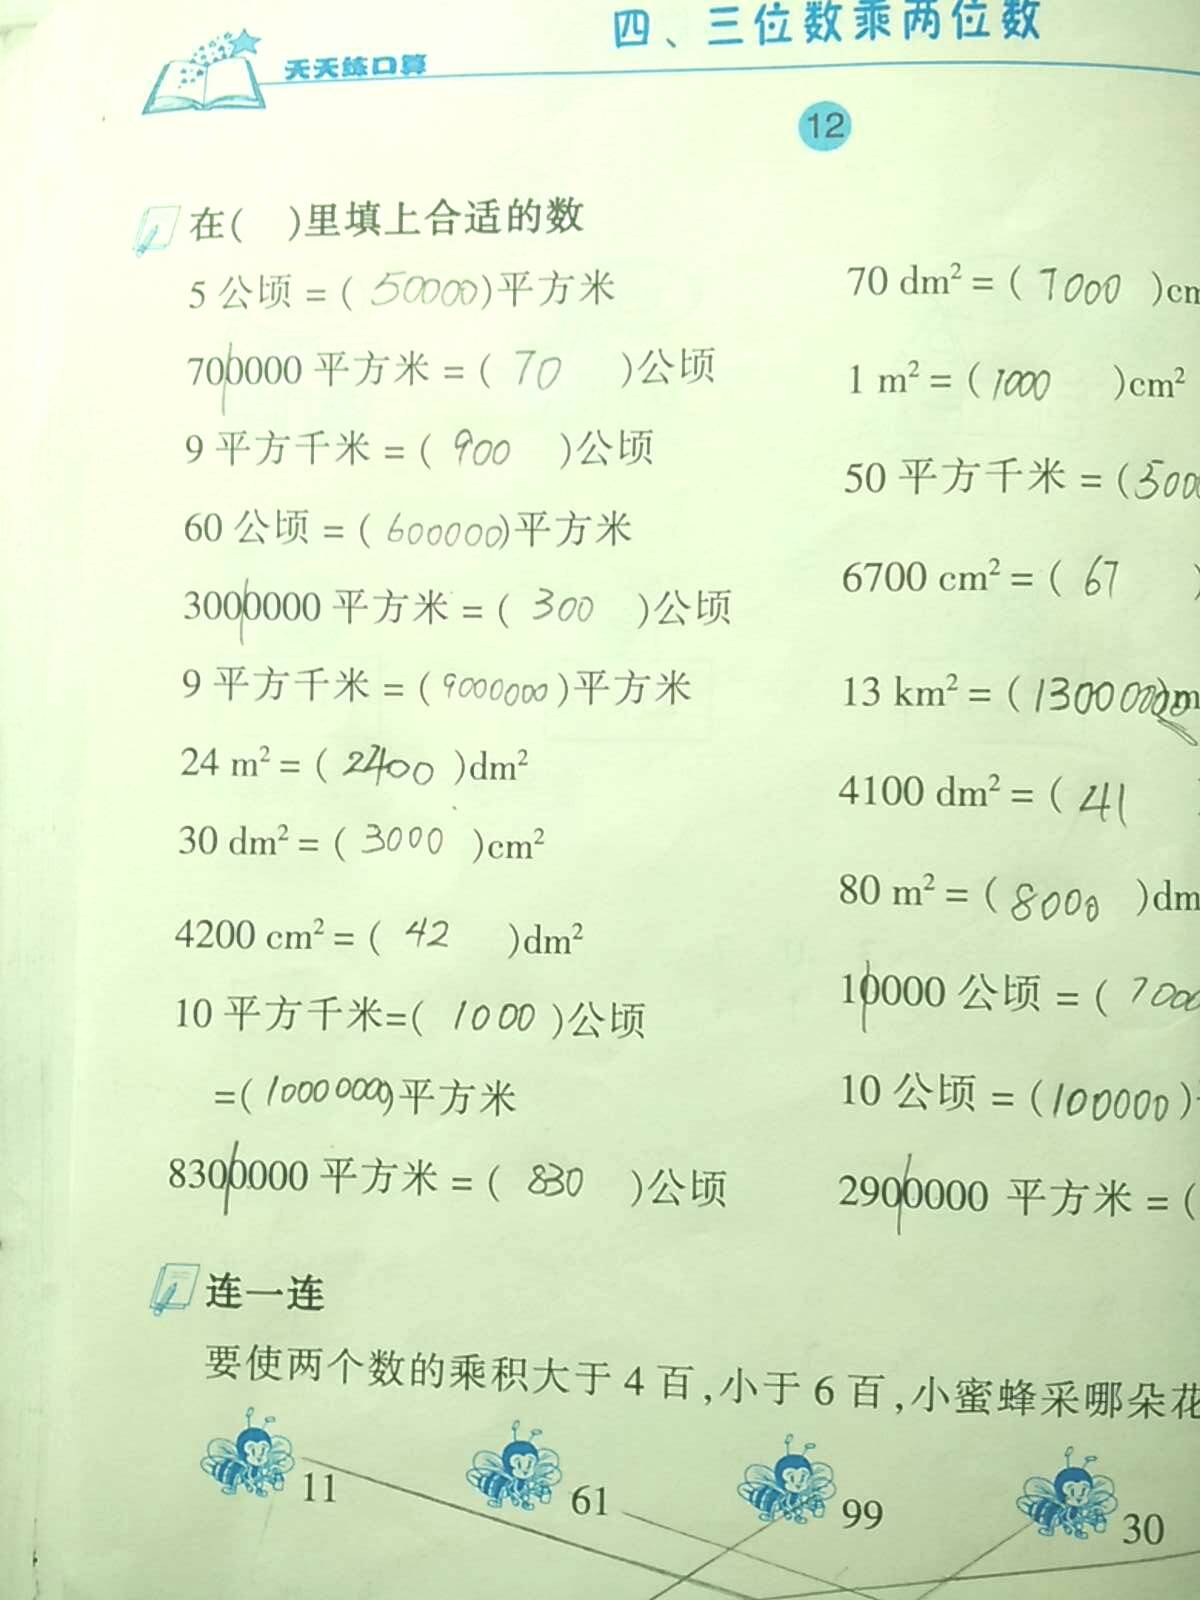 四、三位数乘两位数
天天练口算
12
在( )里填上合适的数
5 公顷 = ( 50000 )平方米
700000 平方米 = ( 70 )公顷
9 平方千米 = ( 900 )公顷
60 公顷 = ( 600000 )平方米
3000000 平方米 = ( 300 )公顷
9 平方千米 = ( 9000000 )平方米
24 m² = ( 2400 )dm²
30 dm² = ( 3000 )cm²
4200 cm² = ( 42 )dm²
10 平方千米=( 1000 )公顷
=( 10000000 )平方米
8300000 平方米 = ( 830 )公顷
70 dm² = ( 7000 )cm
1 m² = ( 1000 )cm²
50 平方千米 = (5000
6700 cm² = ( 67 )
13 km² = ( 13000000)m
4100 dm² = ( 41
80 m² = ( 8000 )dm
10000 公顷 = (
10 公顷 = (100000)
2900000 平方米 = (
连一连
要使两个数的乘积大于 4 百,小于 6 百,小蜜蜂采哪朵花
11 61 99 30